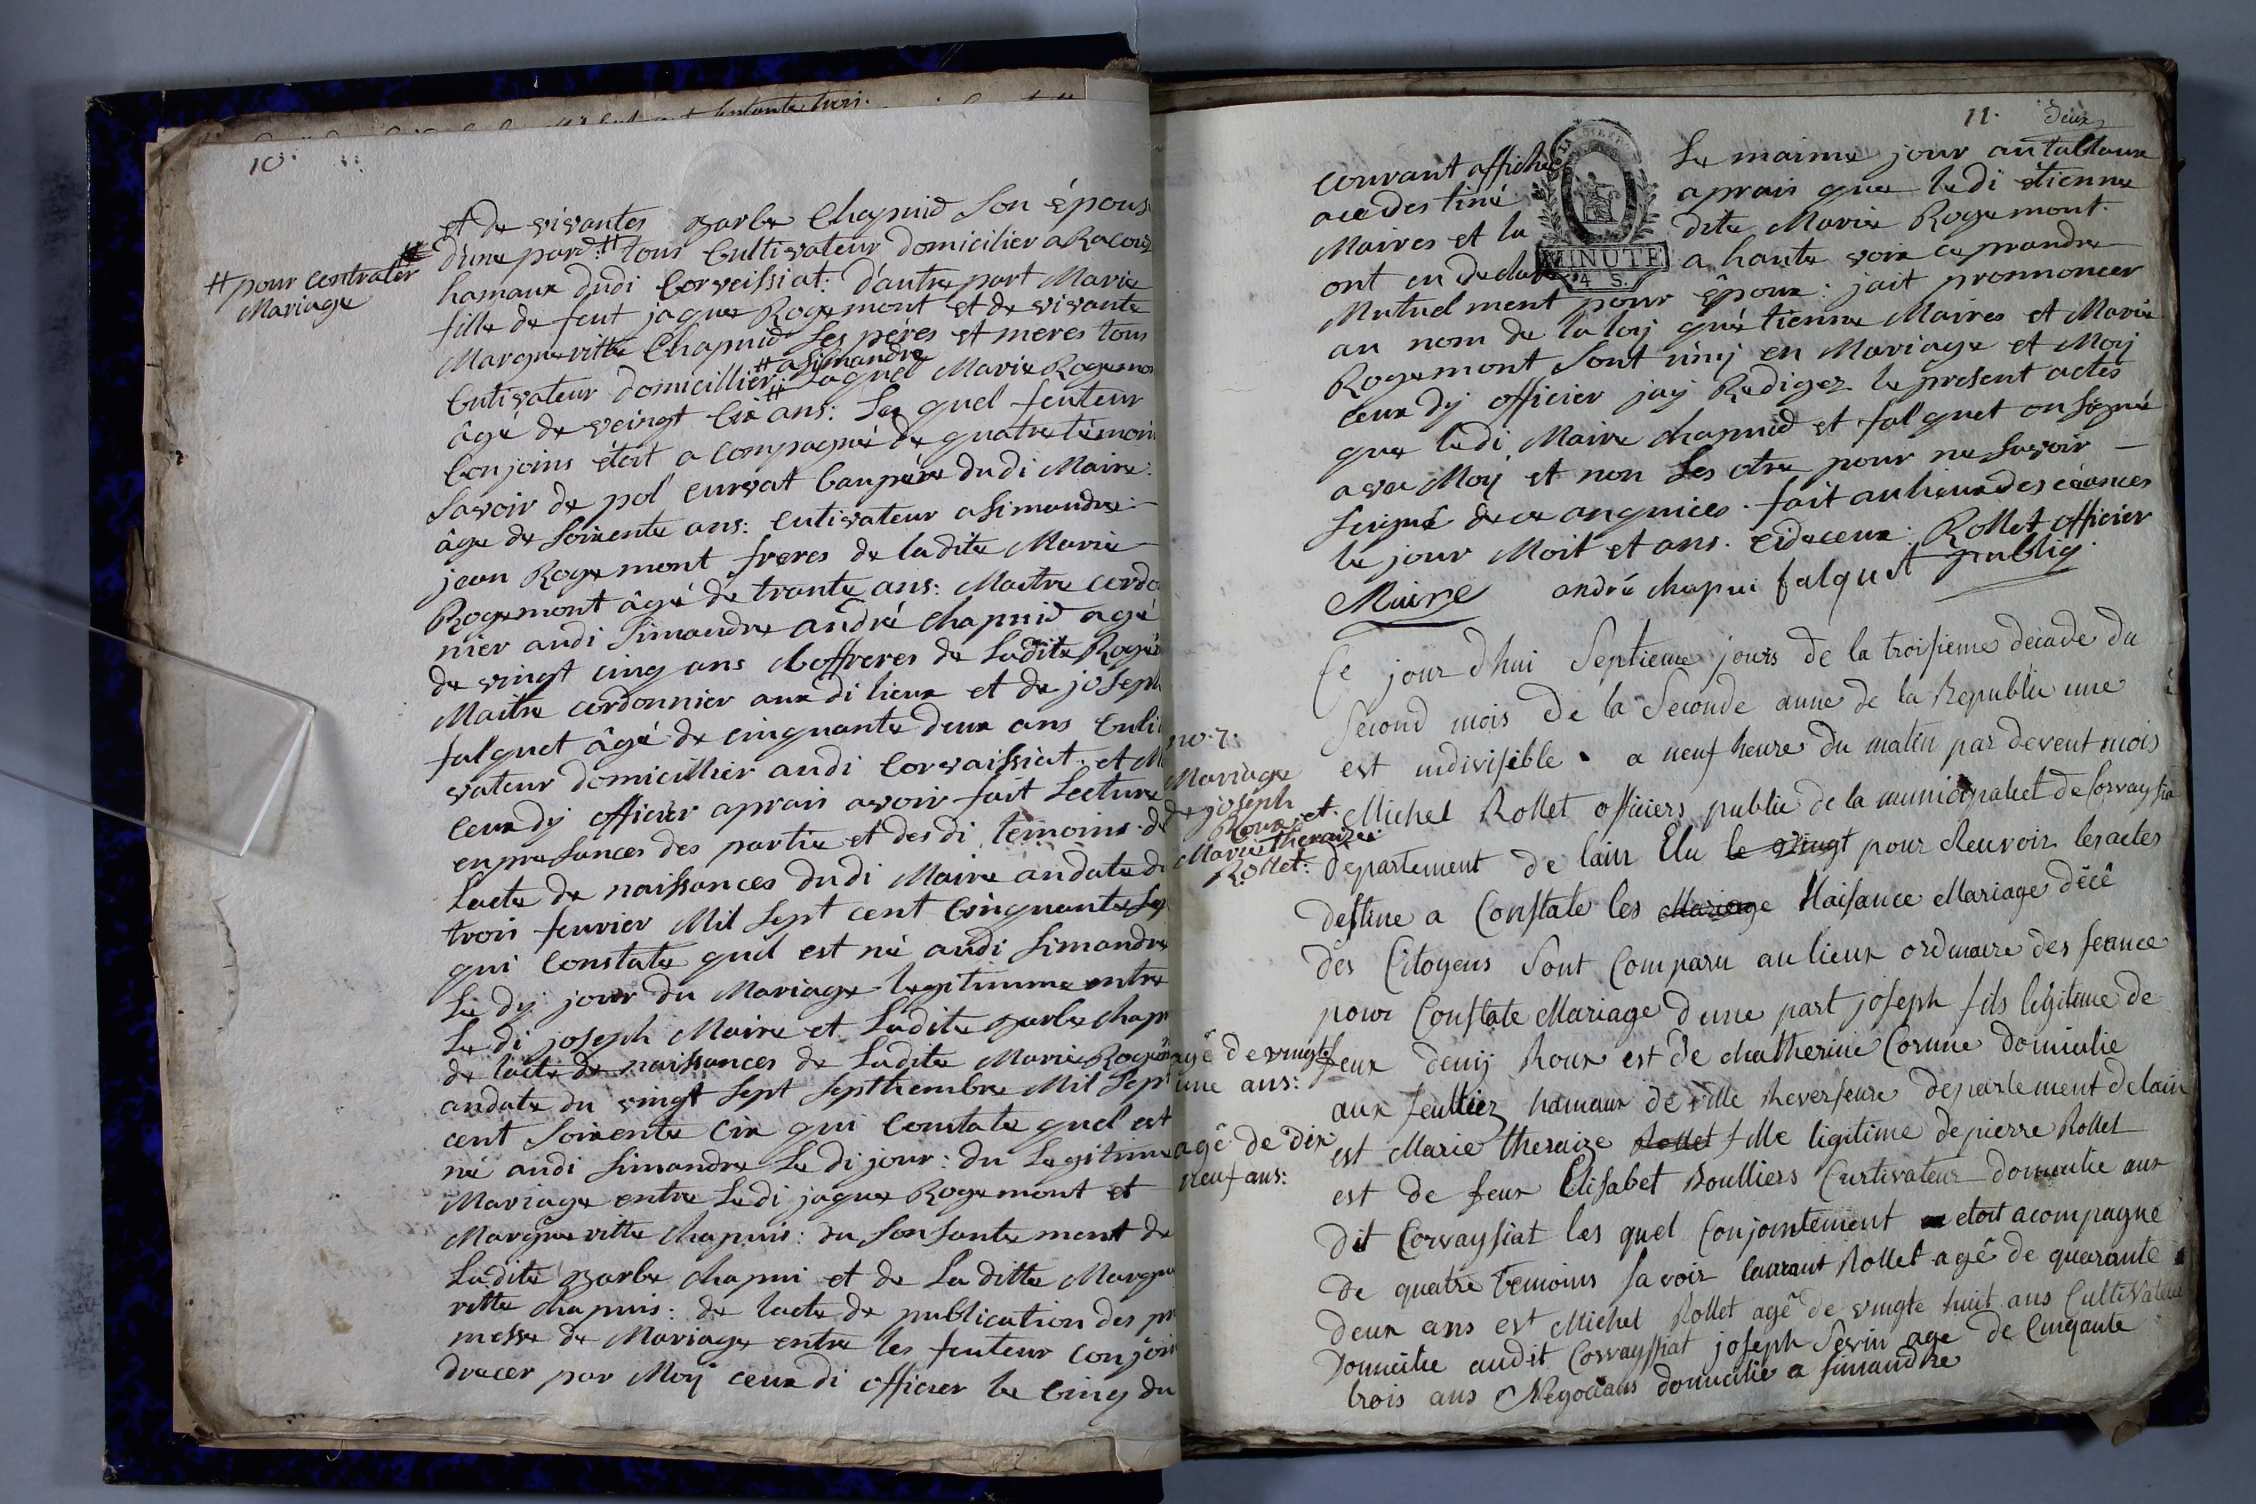 10.
et de vivantes Barbe Chapuid son épous
d'une pard: # tous Cultivateur domicilier a Racouz
# pour contrater
Mariage
hamaux dudi Corveissiat: d'autre part Marie
fille de feut jaques Rogemont et de vivante
Margueritte Chapuid Ses pères et meres tous
Cutivateur domicillier: # a Simandre Laquel Marie Rogemon
âgé de veingt Cix ans: Les quel feuteur
Conjoins étoit acompagné de quatre témoin
Savoir de pol curvat Baupère dudi Maire:
âge de Soixente ans: Cutivateur a Simandre
jean Rogemont freres de ladite Marie
Rogemont âgé de trante ans: Maitre cordo
nier audi Simandre andré chapuid agé
de vingt cinq ans coffreres de Ladite Rogém
Maitre cerdonnier aux di lieux et de joseph
falguet âgé de cinquante deux ans Culi
vateur domicillier audi Corvaissiat. et M
ceux dy officier aprais avoir fait Lecture
en presances des partie et des di temoins d
Lacte de naissances dudi Maire audate d
trois feuvrier Mil sept cent Cinquante sep
qui Constate quil est né audi Simandre
Le dy jour du Mariage legitimme entre
Le di joseph Maire et Ladite Barbe chap
de lacte de naissances de Ladite Marie Rogém
audate du vingt sept septhembre Mil Sept
cent Soixente Cix qui Constate quel est
né audi Simandre Le di jour: du Legitime
Mariage entre Ledi jaques Rogemont et
Margueritte chapuis: du Consante ment de
Ladite Barbe chapui et de La ditte Margue
ritte chapuis: de lacte de publication des pr
messe de Mariage entre les feuteur conjoin
drecer par Moy ceux di officier le Cinq du
11. deux
courant affiche Le maime jour au tableaux
ace destiné aprais que ledi étienne
Maires et la dite Marie Rogemont.
ont eu declare a haute voix ce prandre
MINUTE
4 S.
Mutuelment pour époux: jait pronnoncer
au nom de la loy qu'étienne Maires et Marie
Rogemont sont unij en Mariage et Moy
ceux dy officier jay Redigez le present actes
que ledi Maire chapuid et falguet on signé
avec Moy et non Les otre pour ne Savoir
Seigné de ce anquices. fait au lieux des céances
le jour Moit et ans. ci deceux. Rollet officier
Maire andré chapui falguet publiq
Ce jour dhui Septieme jours de la troisieme decade du
Second mois de la Seconde anne de la Republic une
est indivisible. a neuf heure du matin par devent mois
no. 7.
Mariage
de joseph
Roux et
Marie Theraize
Rollet:
Michel Rollet officiers public de la municipaliet de Corvaysia
departement de lain Elu le vingt pour Reuvoir les actes
destine a Constate les Mariage Naisance Mariage décé
des Citoyens Sont Comparu au lieux ordinaire des seance
pour Constate Mariage dune part joseph fils legiteme de
agé de vingte
une ans:
feux deniy Roux est de chatherine Corune domicilie
aux feulliez hamaux de ville Reversure departement de lain
agé de dix
neuf ans:
est Marie theraize Rollet fille ligitime de pierre Rollet
est de feux Elisabet Boulliers Curtivateur domicilie aux
dit Corvaysiat les quel Conjointement etoit acompagne
de quatre temoins savoir laurant Rollet agê de quarante
deux ans est Michel Rollet agê de vingte huit ans Cultivateur
domicilie audit Corvayssiat joseph Sevin age de Cinqante
trois ans Negocians domicilie a simandre